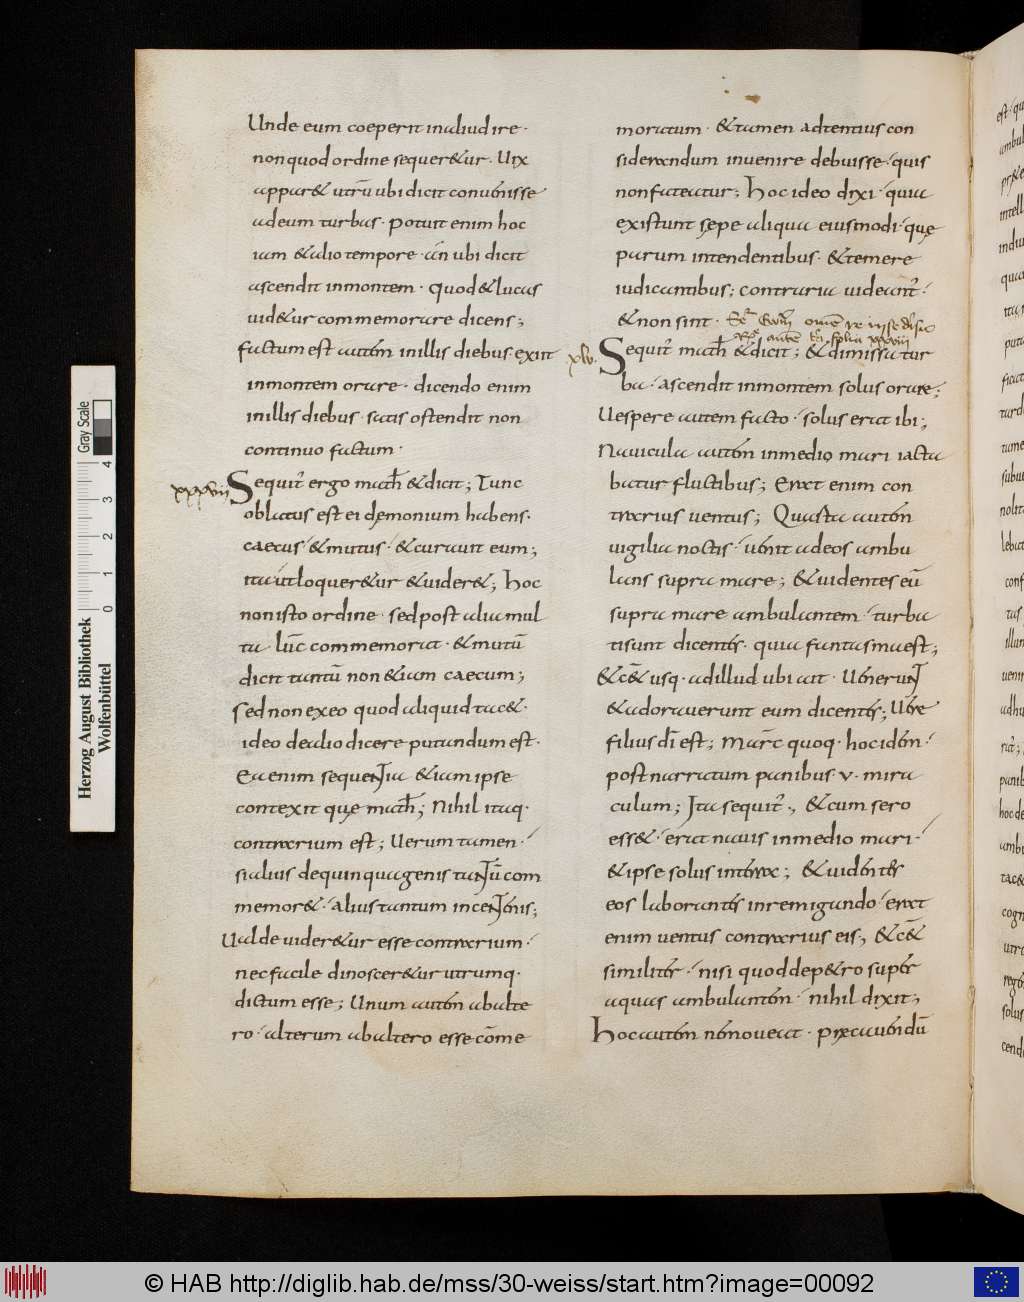 Unde eum coeperit inaliud ire·
nonquod ordine sequer&ur· Uix
appar& utrū ubi dicit conuenisse
adeum turbas· potuit enim hoc
iam &alio tempore· án ubi dicit
ascendit inmontem· quod &lucas
uid&ur commemorare dicens;
factum est autem inillis diebus· exiit
inmontem orare· dicendo enim
inillis diebus· satis ostendit non
continuo factum·
xxxvii Sequit̄ ergo math̄ &dicit; Tunc
oblatus est ei dęmonium habens·
caecus· &mutus· &curauit eum;
ita út loquer&ur &uider&; hoc
non isto ordine· sed post alia mul
ta lūc commemorat· &mutū
dicit tantū non &iam caecum;
sed non ex eo quod aliquid tac&·
ideo de alio dicere putandum est·
Ea enim sequentia &iam ipse
contexit quę math̄; Nihil itaq·
contrarium est; Uerum tamen·
si alius de quinquagenis tantū com
memor&· alius tantum incentenis;
Ualde uider&ur esse contrarium·
nec facile dinoscer&ur utrumq·
dictum esse; Unum autem abalte
ro· alterum abaltero esse cōme
moratum· &tamen adtentius con
siderandum inuenire debuisse· quis
non fateatur; hoc ideo dixi· quia
existunt sępe aliqua eiusmodi· quę
parum intendentibus· &temere
iudicantibus; contraria uideant̄·
&non sint·
xlv· Sequit̄ math̄ &dicit; &dimissa tur
ba· ascendit inmontem solus orare;
Uespere autem facto· solus erat ibi;
Nauicula autem inmedio mari iacta
batur fluctibus; Erat enim con
trarius uentus; Quarta autem
uigilia noctis· uenit adeos ambu
lans supra mare; &uidentes eū
supra mare ambulantem· turba
ti sunt dicentes· quia fantasma est;
&cē& usq· adillud ubi ait· Uenerunt
&adorauerunt eum dicentes; Uere
filius dī est; Marc̄ quoq· hoc idem·
post narratum panibus· v· mira
culum; Ita sequit̄·, &cum sero
ess&· erat nauis inmedio mari·
&ipse solus interra; &uidentes
eos laborantes inremigando· erat
enim uentus contrarius eis, &cē&
similiter· nisi quod dep&ro super
aquas ambulantem· nihil dixit;
Hoc autem ne moueat· pręcauendū
Herzog August Bibliothek
Wolfenbüttel
0 1 2 3 4
Gray Scale
© HAB http://diglib.hab.de/mss/30-weiss/start.htm?image=00092